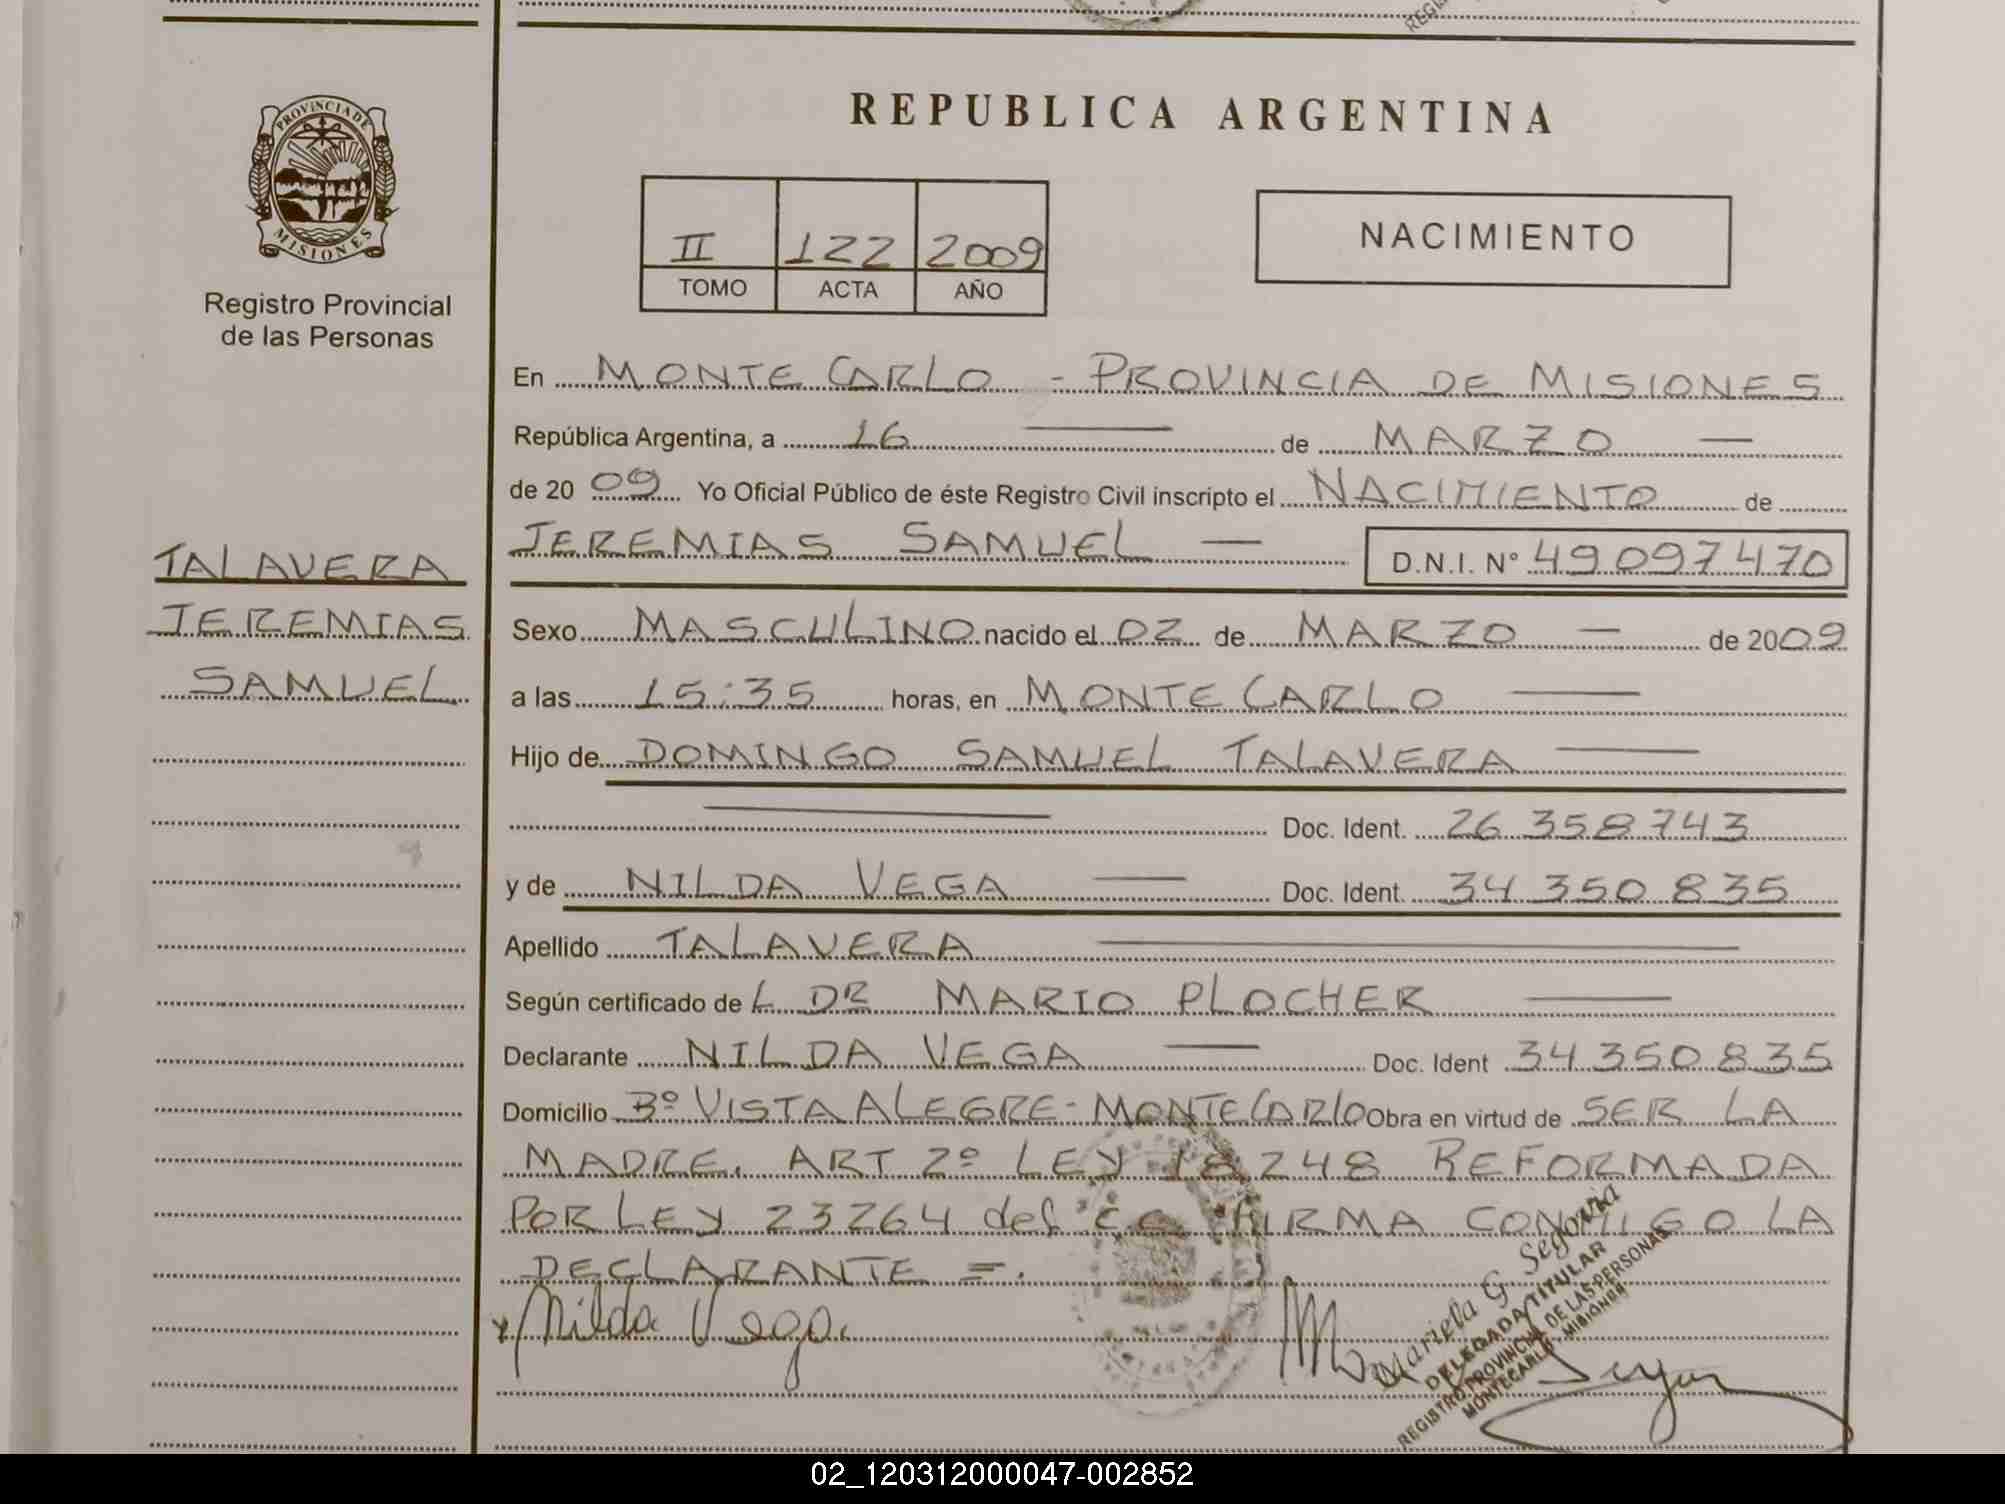 REPUBLICA ARGENTINA
PROVINCIA DE
MISIONES
Registro Provincial
de las Personas
II 122 2009
TOMO ACTA AÑO
NACIMIENTO
En MONTE CARLO - PROVINCIA DE MISIONES
República Argentina, a 16 — de MARZO —
de 20 09 Yo Oficial Público de éste Registro Civil inscripto el NACIMIENTO de
JEREMIAS SAMUEL — D.N.I. Nº 49097470
TALAVERA
JEREMIAS
SAMUEL
Sexo MASCULINO nacido el 02 de MARZO — de 2009
a las 15:35 horas, en MONTE CARLO —
Hijo de DOMINGO SAMUEL TALAVERA —
— Doc. Ident. 26 358 743
y de NILDA VEGA — Doc. Ident. 34 350 835
Apellido TALAVERA —
Según certificado de L DR MARIO PLOCHER —
Declarante NILDA VEGA — Doc. Ident 34 350 835
Domicilio Bº VISTA ALEGRE - MONTECARLO Obra en virtud de SER LA
MADRE. ART 2º LEY 18248 REFORMADA
POR LEY 23264 del C.C. FIRMA CONMIGO LA
DECLARANTE =.
Nilda Vega
Mariela G. Segovia
DELEGADA TITULAR
REGISTRO PROVINCIAL DE LAS PERSONAS
MONTECARLO - MISIONES
02_120312000047-002852